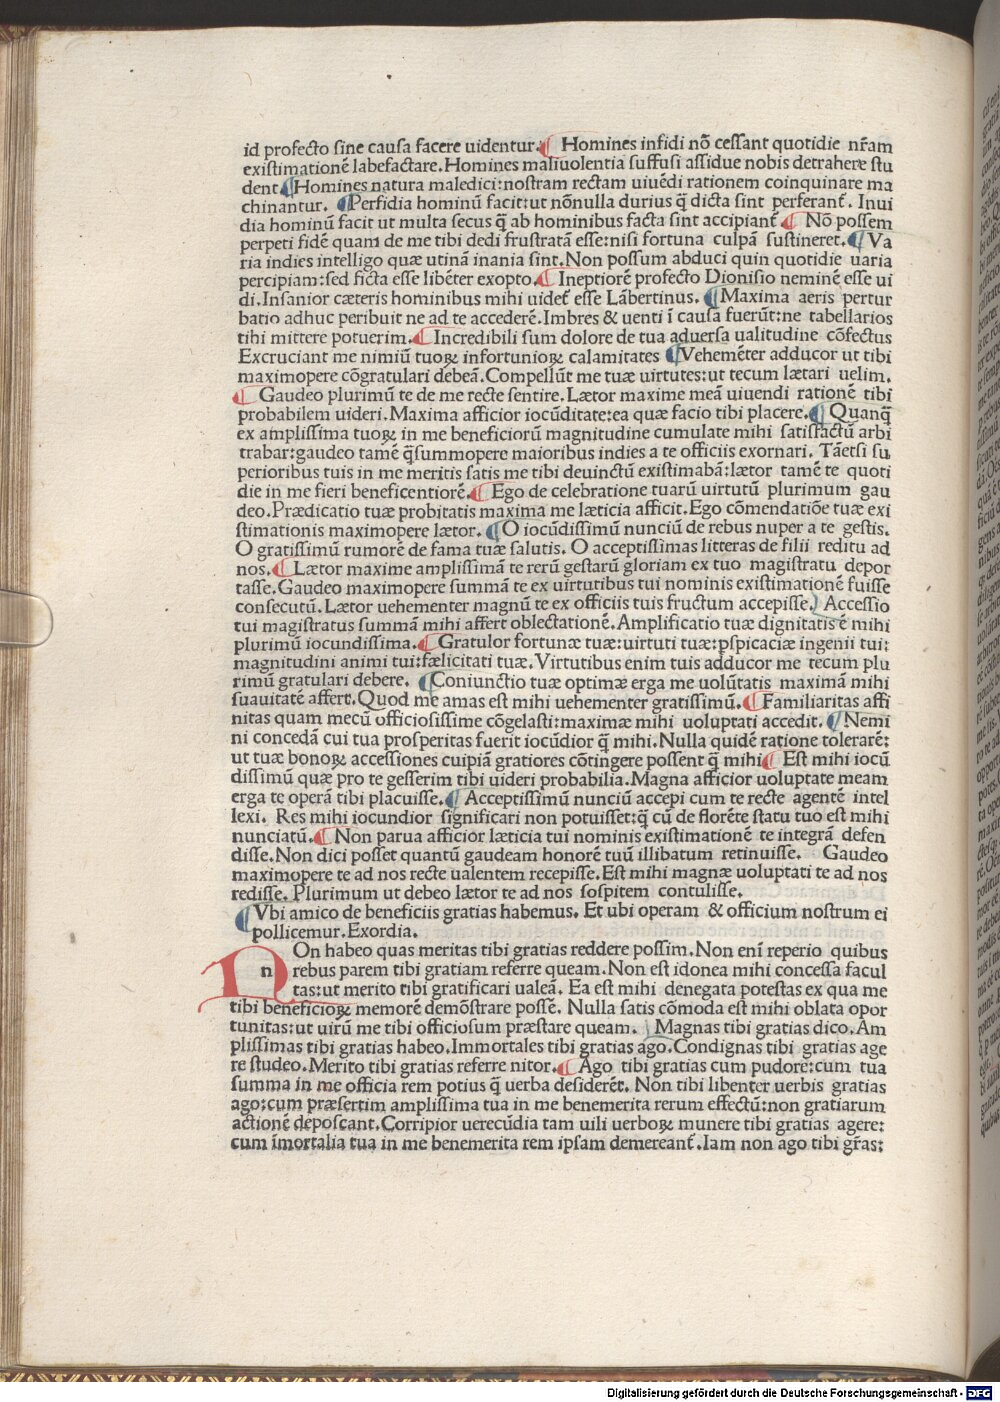 id profecto sine causa facere uidentur. ¶ Homines infidi nõ cessant quotidie nr̃am
existimationẽ labefactare. Homines maliuolentia suffusi assidue nobis detrahere stu
dent ¶ Homines natura maledici: nostram rectam uiuẽdi rationem coinquinare ma
chinantur. ¶ Perfidia hominũ facit: ut nõnulla durius q̃ dicta sint perferant̃. Inui
dia hominũ facit ut multa secus q̃ ab hominibus facta sint accipiant̃ ¶ Nõ possem
perpeti fidẽ quam de me tibi dedi frustratã esse: nisi fortuna culpã sustineret. ¶ Va
ria indies intelligo quæ utinã inania sint. Non possum abduci quin quotidie uaria
percipiam: sed ficta esse libẽter exopto. ¶ Ineptiorẽ profecto Dionisio neminẽ esse ui
di. Insanior cæteris hominibus mihi uidet̃ esse Lãbertinus. ¶ Maxima aeris pertur
batio adhuc peribuit ne ad te accederẽ. Imbres & uenti ĩ causa fuerũt: ne tabellarios
tihi mittere potuerim. ¶ Incredibili sum dolore de tua aduersa ualitudine cõfectus
Excruciant me nimiũ tuoꝝ infortunioꝝ calamitates ¶ Vehemẽter adducor ut tibi
maximopere cõgratulari debeã. Compellũt me tuæ uirtutes: ut tecum lætari uelim.
¶ Gaudeo plurimũ te de me recte sentire. Lætor maxime meã uiuendi rationẽ tibi
probabilem uideri. Maxima afficior iocũditate: ea quæ facio tibi placere. ¶ Quanq̃
ex amplissima tuoꝝ in me beneficiorũ magnitudine cumulate mihi satisfactũ arbi
trabar: gaudeo tamẽ q̃summopere maioribus indies a te officiis exornari. Tãetsi su
perioribus tuis in me meritis satis me tibi deuinctũ existimabã: lætor tamẽ te quoti
die in me fieri beneficentiorẽ. ¶ Ego de celebratione tuarũ uirtutũ plurimum gau
deo. Prædicatio tuæ probitatis maxima me læticia afficit. Ego cõmendatiõe tuæ exi
stimationis maximopere lætor. ¶ O iocũdissimũ nunciũ de rebus nuper a te gestis.
O gratissimũ rumorẽ de fama tuæ salutis. O acceptissimas litteras de filii reditu ad
nos. ¶ Lætor maxime amplissimã te rerũ gestarũ gloriam ex tuo magistratu depor
tasse. Gaudeo maximopere summã te ex uirtutibus tui nominis existimationẽ fuisse
consecutũ. Lætor uehementer magnũ te ex officiis tuis fructum accepisse. Accessio
tui magistratus summã mihi affert oblectationẽ. Amplificatio tuæ dignitatis ẽ mihi
plurimũ iocundissima. ¶ Gratulor fortunæ tuæ: uirtuti tuæ: ꝑspicaciæ ingenii tui:
magnitudini animi tui: fælicitati tuæ. Virtutibus enim tuis adducor me tecum plu
rimũ gratulari debere. ¶ Coniunctio tuæ optimæ erga me uolũtatis maximã mihi
suauitatẽ affert. Quod me amas est mihi uehementer gratissimũ. ¶ Familiaritas affi
nitas quam mecũ officiosissime cõgelasti: maximæ mihi uoluptati accedit. ¶ Nemi
ni concedã cui tua prosperitas fuerit iocũdior q̃ mihi. Nulla quidẽ ratione tolerarẽ:
ut tuæ bonoꝝ accessiones cuipiã gratiores cõtingere possent q̃ mihi ¶ Est mihi iocũ
dissimũ quæ pro te gesserim tibi uideri probabilia. Magna afficior uoluptate meam
erga te operã tibi placuisse. ¶ Acceptissimũ nunciũ accepi cum te recte agentẽ intel
lexi. Res mihi iocundior significari non potuisset: q̃ cũ de florẽte statu tuo est mihi
nunciatũ. ¶ Non parua afficior læticia tui nominis existimationẽ te integrã defen
disse. Non dici posset quantũ gaudeam honorẽ tuũ illibatum retinuisse. Gaudeo
maximopere te ad nos recte ualentem recepisse. Est mihi magnæ uoluptati te ad nos
redisse. Plurimum ut debeo lætor te ad nos sospitem contulisse.
¶ Vbi amico de beneficiis gratias habemus. Et ubi operam & officium nostrum ei
pollicemur. Exordia.
NOn habeo quas meritas tibi gratias reddere possim. Non enĩ reperio quibus
rebus parem tibi gratiam referre queam. Non est idonea mihi concessa facul
tas: ut merito tibi gratificari ualeã. Ea est mihi denegata potestas ex qua me
tibi beneficioꝝ memorẽ demõstrare possẽ. Nulla satis cõmoda est mihi oblata opor
tunitas: ut uirũ me tibi officiosum præstare queam. Magnas tibi gratias dico. Am
plissimas tibi gratias habeo. Immortales tibi gratias ago. Condignas tibi gratias age
re studeo. Merito tibi gratias referre nitor. ¶ Ago tibi gratias cum pudore: cum tua
summa in me officia rem potius q̃ uerba desiderẽt. Non tibi libenter uerbis gratias
ago: cum præsertim amplissima tua in me benemerita rerum effectũ: non gratiarum
actionẽ deposcant. Corripior uerecũdia tam uili uerboꝝ munere tibi gratias agere:
cum ĩmortalia tua in me benemerita rem ipsam demereant̃. Iam non ago tibi gr̃as:
Digitalisierung gefördert durch die Deutsche Forschungsgemeinschaft - DFG